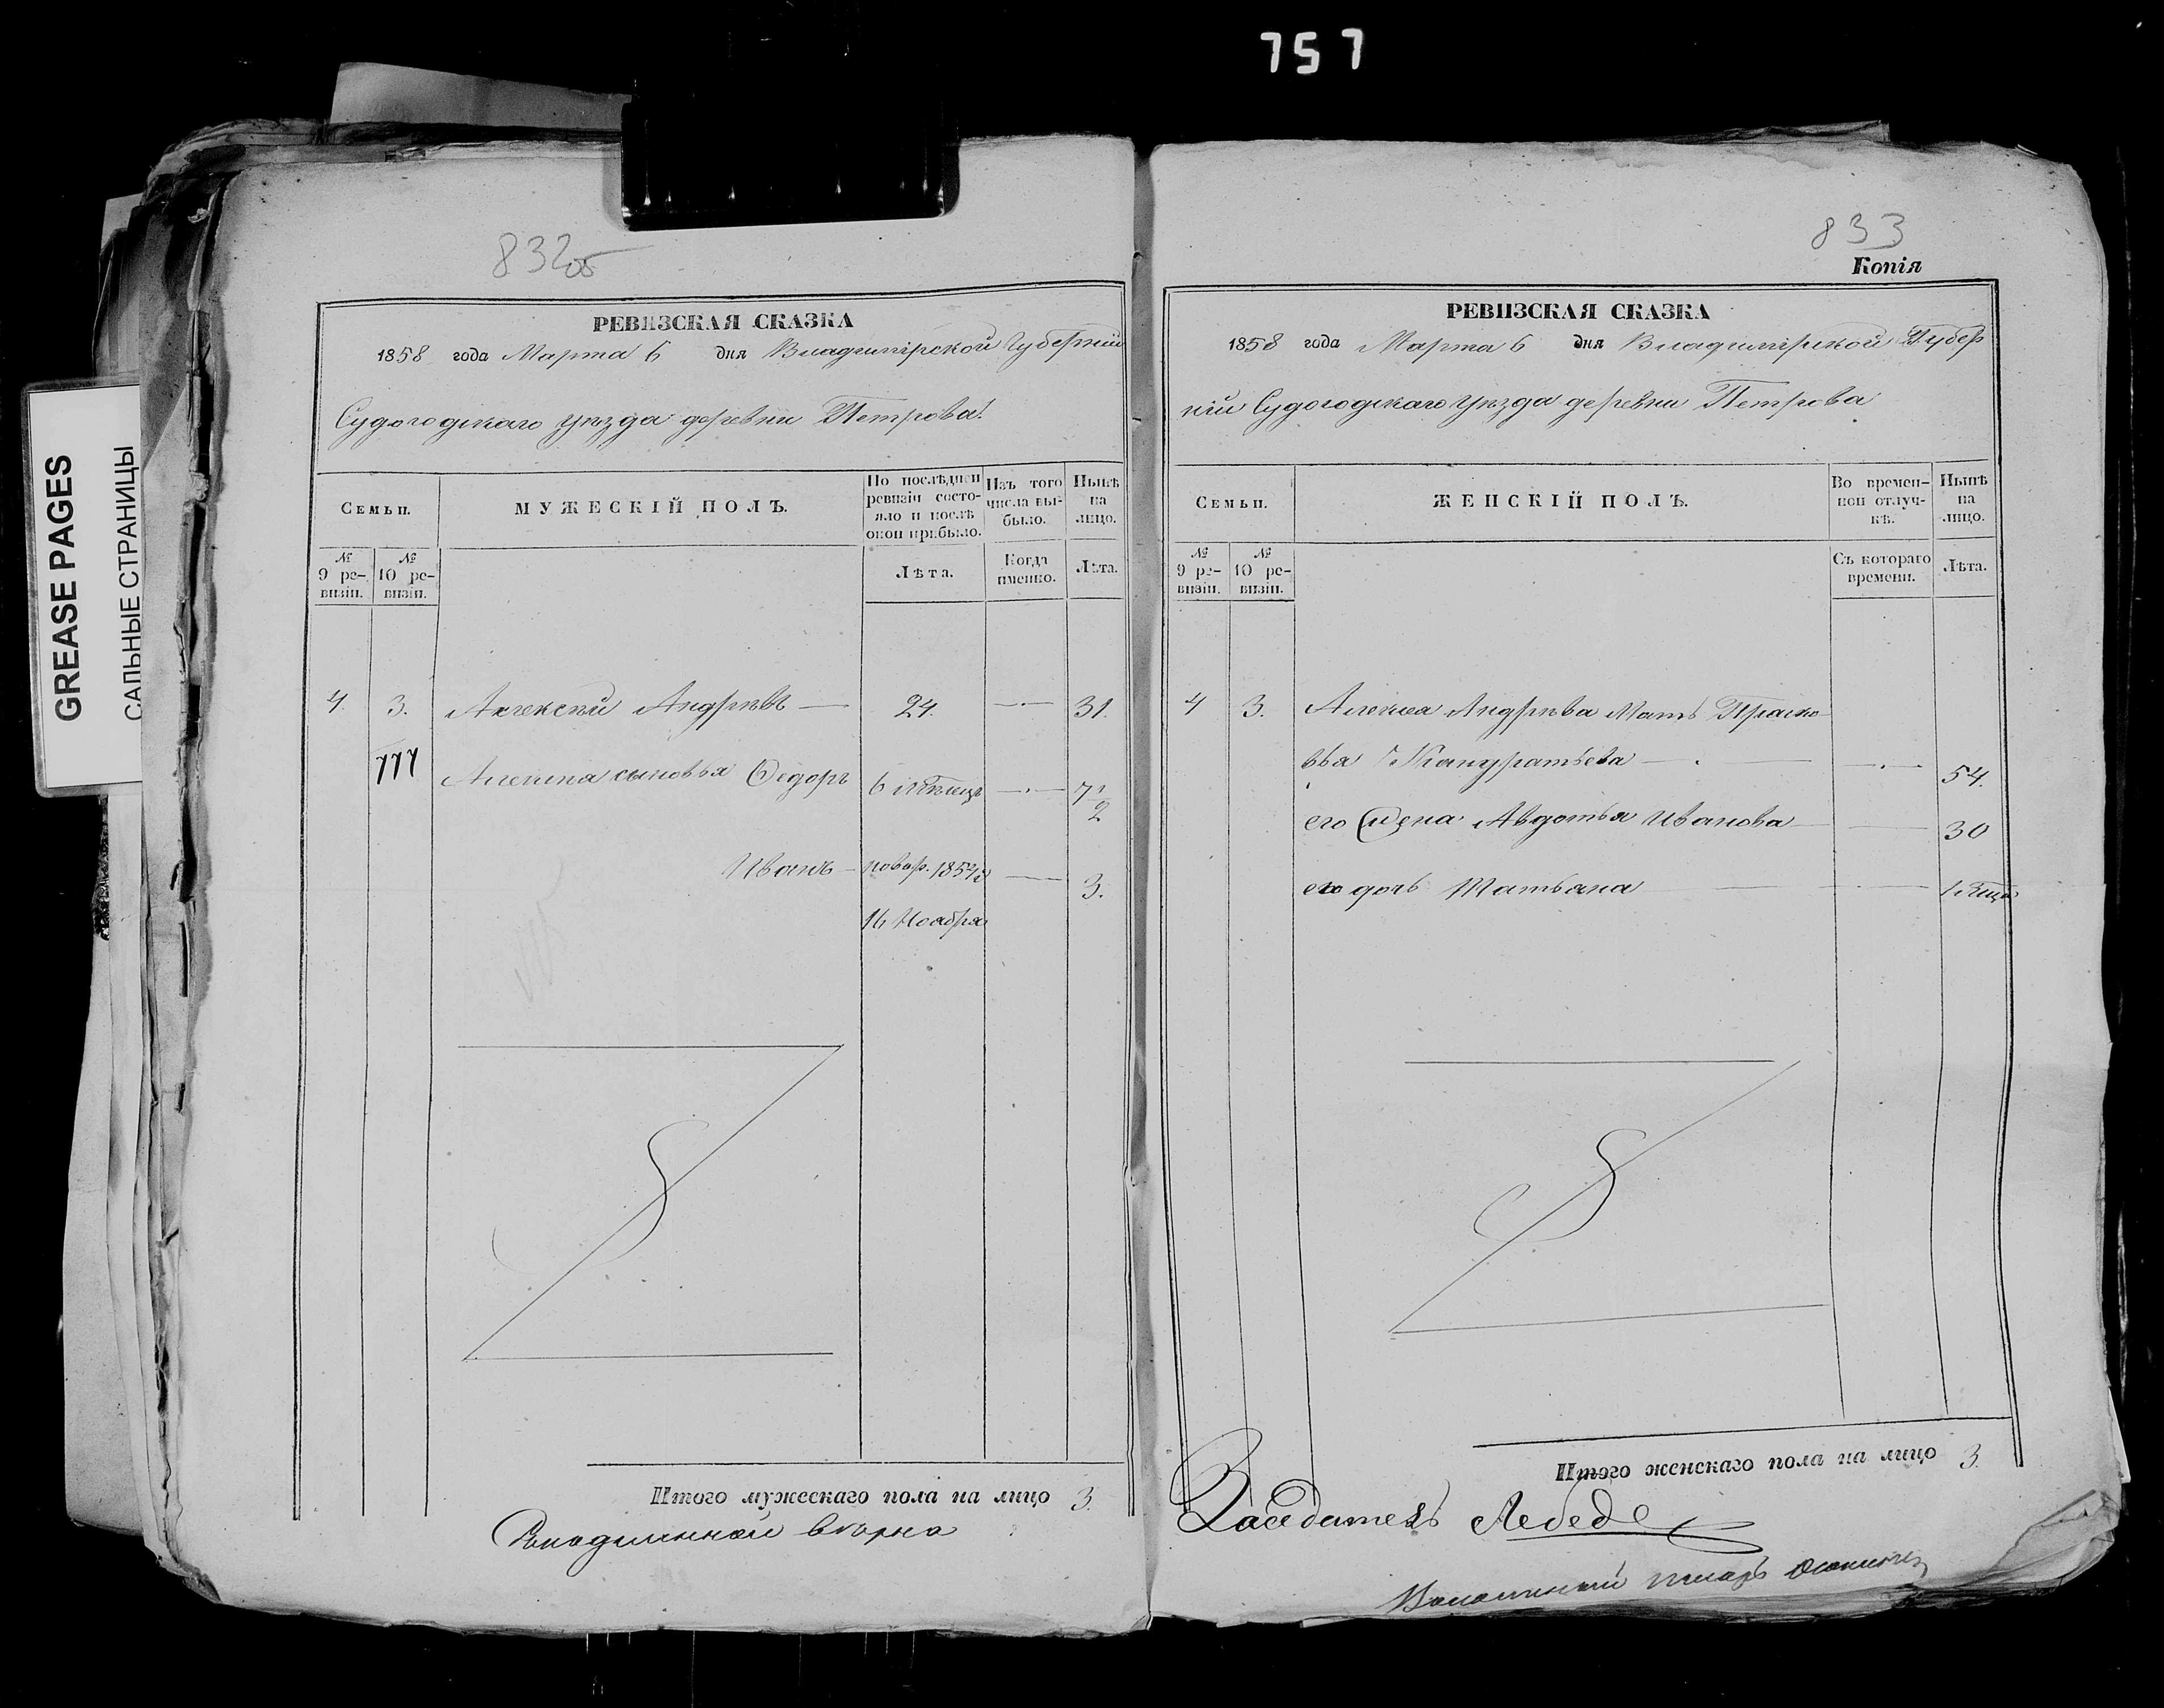 757
GREASE PAGES
САЛЬНЫЕ СТРАНИЦЫ
832об
РЕВИЗСКАЯ СКАЗКА
1858 года Марта 6 дня Владимірской Губерніи
Судогодскаго уѣзда деревни Петрова.
Семьи.
МУЖЕСКІЙ ПОЛЪ.
По послѣдней ревизіи состояло и послѣ оной прибыло.
Изъ того числа выбыло.
Нынѣ на лицо.
№ 9 ревизіи.
№ 10 ревизіи.
Лѣта.
Когда именно.
Лѣта.
4. 3. Алексѣй Андрѣевъ — 24. —·— 31.
777 Алексѣя сыновья Ѳедоръ 6 мѣсяцъ —·— 7 1/2
Иванъ — новор. 1854 г. — 3.
16 Ноября
Итого мужескаго пола на лицо 3.
Сподлинной вѣрно
833
Копія
РЕВИЗСКАЯ СКАЗКА
1858 года Марта 6 дня Владимірской Губер
ніи Судогодскаго уѣзда деревни Петрова
Семьи.
ЖЕНСКІЙ ПОЛЪ.
Во временной отлучкѣ.
Нынѣ на лицо.
№ 9 ревизіи.
№ 10 ревизіи.
Съ котораго времени.
Лѣта.
4 3. Алексея Андрѣва Мать Праско
вья Кандратьева —·— —·— 54.
его Жена Авдотья Иванова — — 30
его дочь Татьана —·—
Итого женскаго пола на лицо 3.
Заседатель Лебеде
Волостной писарь